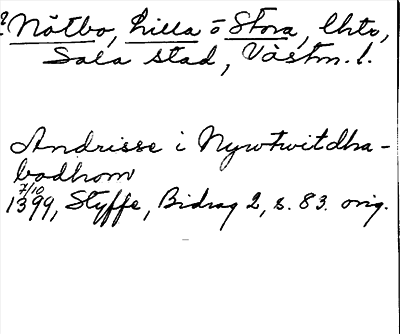 ? Nötbo, Lilla o Stora, Ehtr,
Sala stad, Västm. l.
Andrisse i Nywtwitdha-
bodhom
7/10
1399, Styffe, Bidrag 2, s. 83. orig.